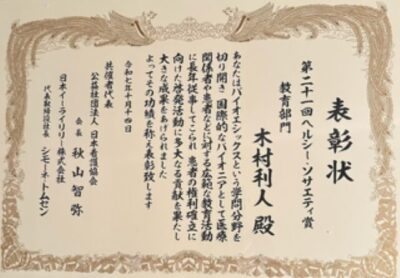 表彰状
第二十一回ヘルシー・ソサエティ賞
教育部門
木村利人殿
あなたはバイオエシックスという学問分野を
切り開き国際的なパイオニアとして医療
関係者や患者などに対する広範な教育活動
に長年従事してこられ患者の権利確立に
向けた啓発活動に多大なる貢献を果たし
大きな成果をあげられました
よってその功績を称え表彰致します
令和七年十月十四日
共催者代表
公益社団法人 日本看護協会
会長 秋山智弥
日本イーライリリー株式会社
代表取締役社長 シモーネ・トムセン